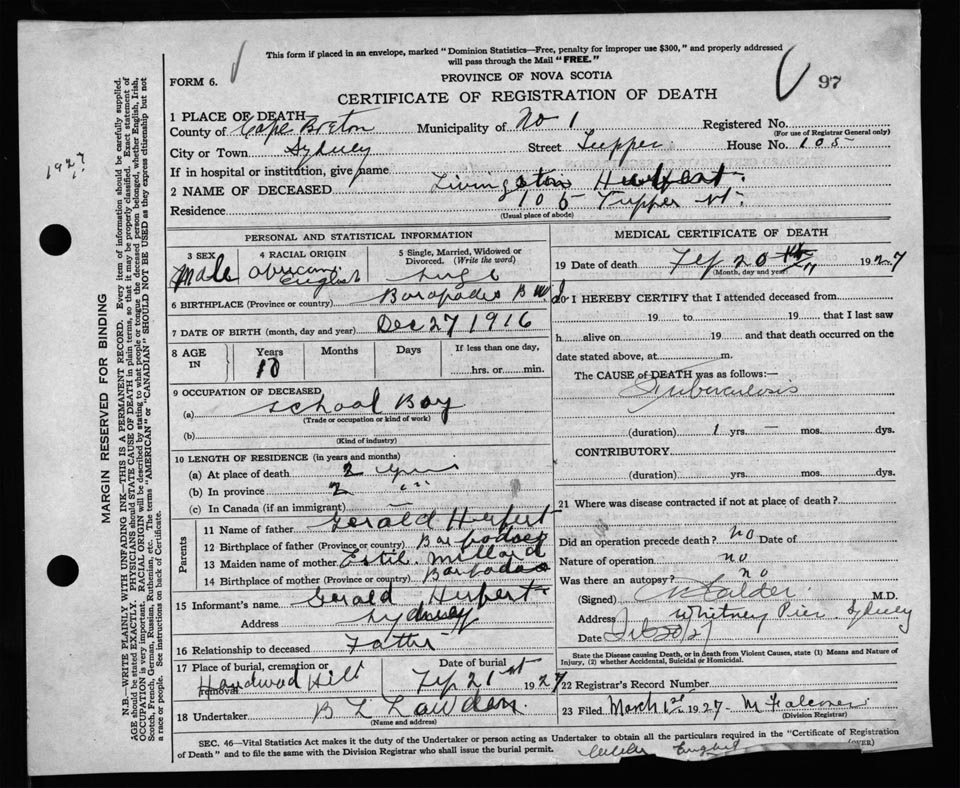 This form if placed in an envelope, marked "Dominion Statistics—Free, penalty for improper use $300," and properly addressed
will pass through the Mail "FREE."
FORM 6.
PROVINCE OF NOVA SCOTIA
97
CERTIFICATE OF REGISTRATION OF DEATH
1927
1 PLACE OF DEATH
County of Cape Breton Municipality of No 1 Registered No.
(For use of Registrar General only)
City or Town Sydney Street Tupper House No. 105
If in hospital or institution, give name
2 NAME OF DECEASED Livingston Herbert
Residence 105 Tupper St.
(Usual place of abode)
PERSONAL AND STATISTICAL INFORMATION
3 SEX Male
4 RACIAL ORIGIN English
5 Single, Married, Widowed or Divorced. (Write the word)
6 BIRTHPLACE (Province or country) Barapados B W I
7 DATE OF BIRTH (month, day and year) Dec 27 1916
8 AGE IN Years 10 Months Days If less than one day, hrs. or min.
9 OCCUPATION OF DECEASED
(a) School Boy
(Trade or occupation or kind of work)
(b)
(Kind of industry)
10 LENGTH OF RESIDENCE (in years and months)
(a) At place of death 2 yrs
(b) In province 2 "
(c) In Canada (if an immigrant)
Parents
11 Name of father Gerald Herbert
12 Birthplace of father (Province or country) Barbados
13 Maiden name of mother Millard
14 Birthplace of mother (Province or country) Barbados
15 Informant's name Gerald Herbert
Address Sydney
16 Relationship to deceased Father
17 Place of burial, cremation or removal Hardwood Hill
Date of burial Feb 21st 1927
18 Undertaker B L
(Name and address)
MEDICAL CERTIFICATE OF DEATH
19 Date of death Feb 20 th 1927
(Month, day and year)
20 I HEREBY CERTIFY that I attended deceased from
19 to 19 that I last saw
h alive on 19 and that death occurred on the
date stated above, at m.
The CAUSE of DEATH was as follows:—
Tuberculosis
(duration) 1 yrs. — mos. dys.
CONTRIBUTORY
(duration) yrs. mos. dys.
21 Where was disease contracted if not at place of death?
Did an operation precede death? no Date of
Nature of operation no
Was there an autopsy? no
(Signed) Calder M.D.
Address Whitney Pier, Sydney
Date Feb 20/27
State the Disease causing Death, or in death from Violent Causes, state (1) Means and Nature of
Injury, (2) whether Accidental, Suicidal or Homicidal.
22 Registrar's Record Number
23 Filed March 1st 1927 M Falconer
(Division Registrar)
SEC. 46—Vital Statistics Act makes it the duty of the Undertaker or person acting as Undertaker to obtain all the particulars required in the "Certificate of Registration
of Death" and to file the same with the Division Registrar who shall issue the burial permit.
(OVER)
MARGIN RESERVED FOR BINDING
N.B.—WRITE PLAINLY WITH UNFADING INK—THIS IS A PERMANENT RECORD. Every item of information should be carefully supplied.
AGE should be stated EXACTLY. PHYSICIANS should STATE CAUSE OF DEATH in plain terms, so that it may be properly classified. Exact statement of
OCCUPATION is very important. RACIAL ORIGIN will be described by stating to what people or tongue the deceased person belonged, whether English, Irish,
Scotch, French, German, Russian, Ruthenian, etc. The terms "AMERICAN" or "CANADIAN" SHOULD NOT BE USED as they express citizenship but not
a race or people. See instructions on back of Certificate.